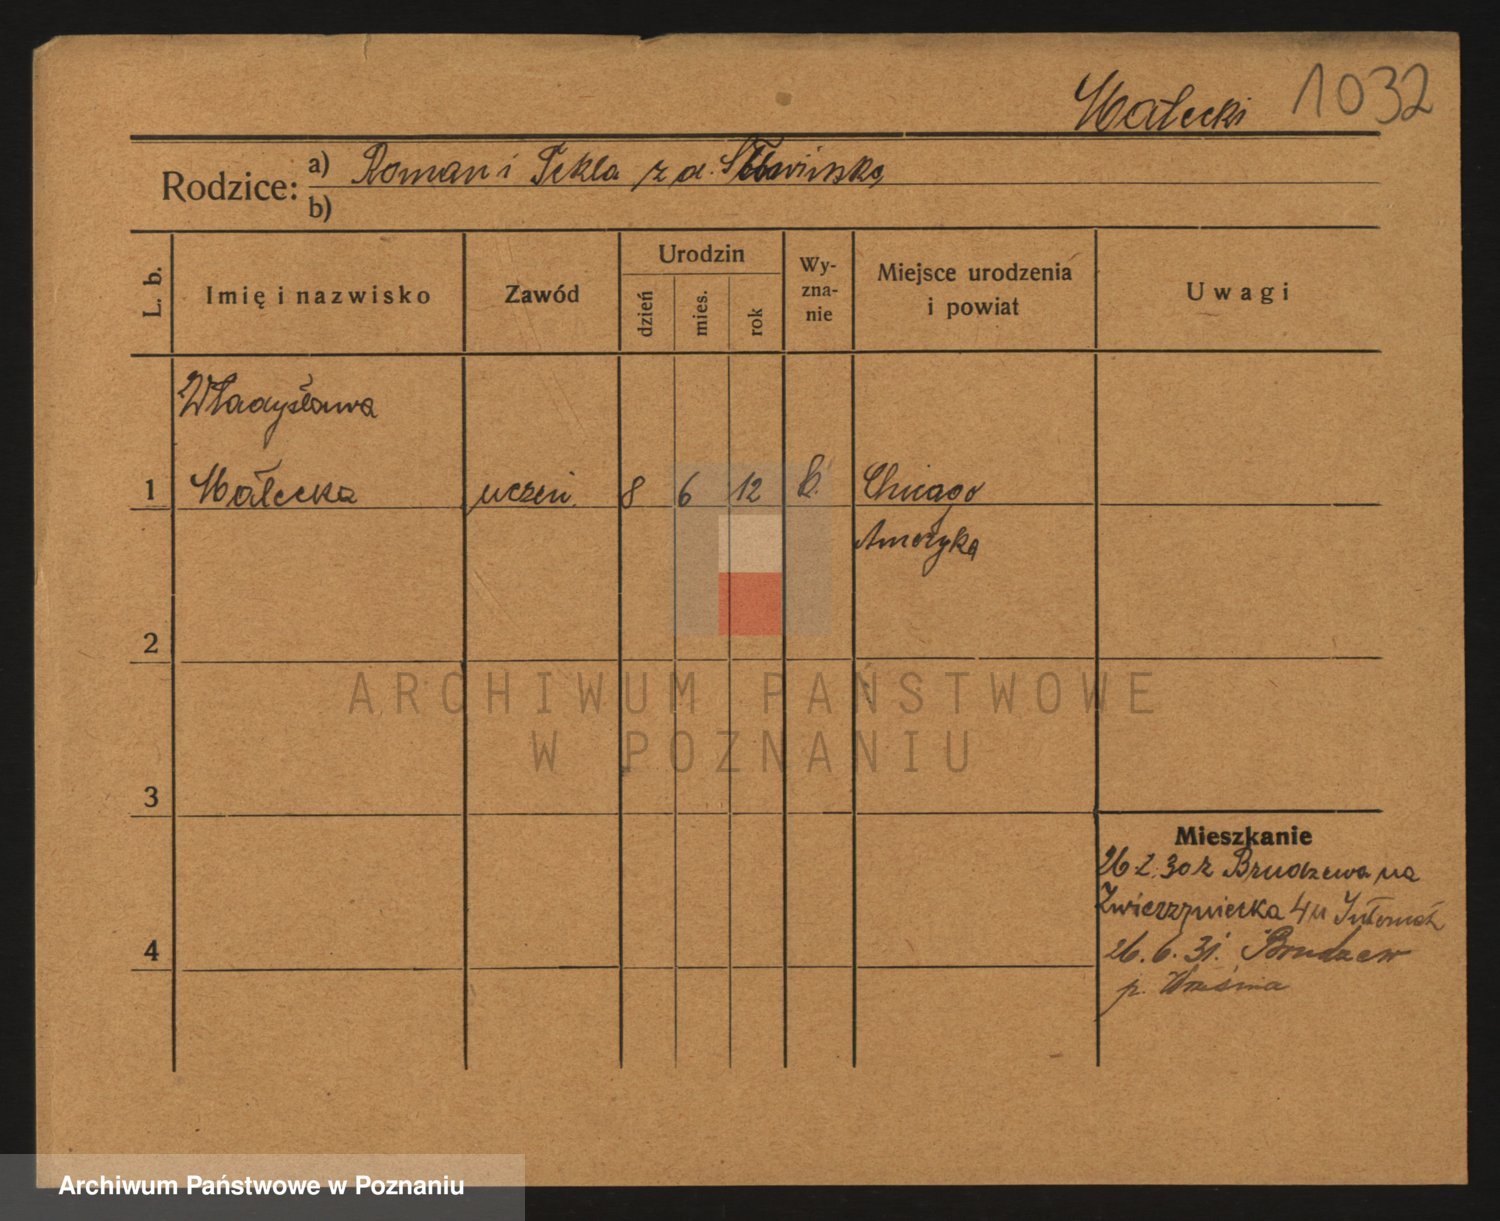 Małecki 1032
Rodzice: a) Roman i Tekla z d. Słowińska
b)
L. b.
Imię i nazwisko
Zawód
Urodzin
dzień
mies.
rok
Wy-
zna-
nie
Miejsce urodzenia
i powiat
Uwagi
Władysława
1 Małecka uczeń 8 6 12 k. Chicago
Ameryka
2
ARCHIWUM PAŃSTWOWE
W POZNANIU
3
Mieszkanie
26.2.30 z Brudzewa na
Zwierzyniecka 4 u
4
26.6.31. Brudzew
p. Września
Archiwum Państwowe w Poznaniu